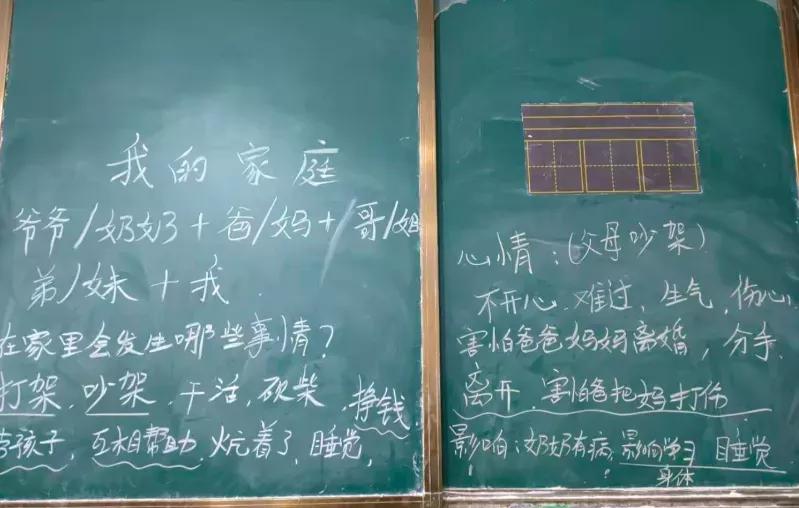 我的家庭
爷爷/奶奶+爸/妈+哥/姐
弟/妹+我
在家里会发生哪些事情？
打架，吵架，干活，砍柴，挣钱
孩子，互相帮助，火亢着了，睡觉，
心情：（父母吵架）
不开心，难过，生气，伤心
害怕爸爸妈妈离婚，分手
离开，害怕爸把妈打伤
影响：奶奶有病，影响学习 睡觉
身体